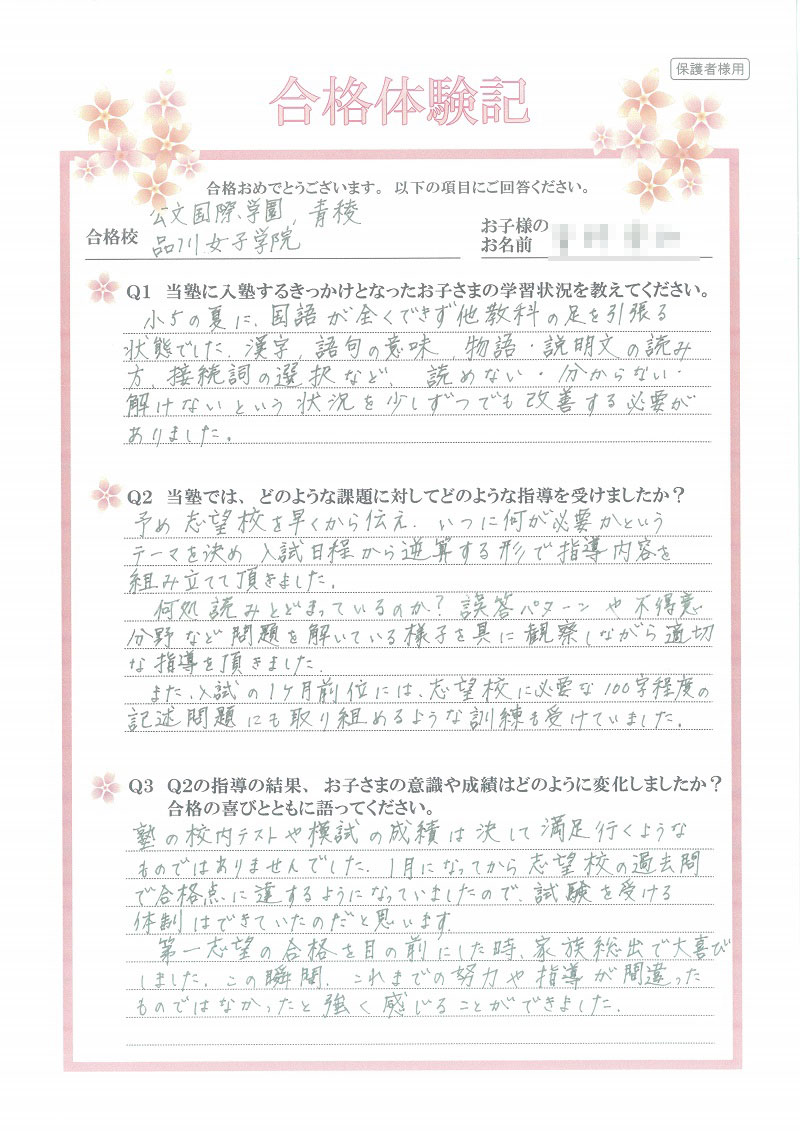 保護者様用
合格体験記
合格おめでとうございます。以下の項目にご回答ください。
合格校
公文国際学園, 青稜
品川女子学院
お子様の
お名前
Q1 当塾に入塾するきっかけとなったお子さまの学習状況を教えてください。
小5の夏に、国語が全くできず他教科の足を引張る
状態でした。漢字、語句の意味、物語・説明文の読み
方、接続詞の選択など、読めない・分からない・
解けないという状況を少しずつでも改善する必要が
ありました。
Q2 当塾では、どのような課題に対してどのような指導を受けましたか？
予め志望校を早くから伝え、いつに何が必要かという
テーマを決め入試日程から逆算する形で指導内容を
組み立てて頂きました。
何処読みとどまっているのか？誤答パターンや不得意
分野など問題を解いている様子を具に観察しながら適切
な指導を頂きました。
また、入試の1ヶ月前位には、志望校に必要な100字程度の
記述問題にも取り組めるような訓練も受けていました。
Q3 Q2の指導の結果、お子さまの意識や成績はどのように変化しましたか？
合格の喜びとともに語ってください。
塾の校内テストや模試の成績は決して満足行くような
ものではありませんでした。1月になってから志望校の過去問
で合格点に達するようになっていましたので、試験を受ける
体制はできていたのだと思います。
第一志望の合格を目の前にした時、家族総出で大喜び
しました。この瞬間、これまでの努力や指導が間違った
ものではなかったと強く感じることができました。